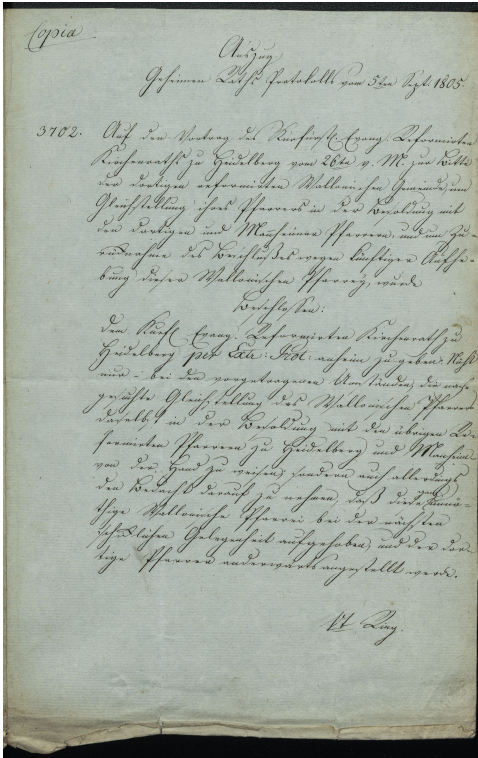 Copia
Auszug
Geheimen Raths Protokolls vom 5ten Sept. 1805.
3702. Auf den Vortrag des Kurfürstl. Evang. Reformirten
Kirchenraths zu Heidelberg vom 26ten v. M. zur Bitte
der dortigen reformirten Wallonischen Gemeinde, um
Gleichstellung ihres Pfarrers in der Besoldung mit
den dortigen und Mannheimer Pfarrern, und um Zu-
rücknahme des Beschlußes wegen künftiger Aufhe-
bung dieser Wallonischen Pfarrey, wurde
Beschlossen:
dem Kurfl. Evang. Reformirten Kirchenrath zu
Heidelberg per Ext: Prot: anheim zu geben: Nicht
nur - bei den vorgetragenen Umständen, die nach-
gesuchte Gleichstellung des Wallonischen Pfarrers
daselbst in der Besoldung mit den übrigen Re-
formirten Pfarrern zu Heidelberg und Manheim
von der Hand zu weisen, sondern auch allerdings
den Bedacht darauf zu nehmen, daß diese ganz unnö-
thige Wallonische Pfarrei bei der nächsten
schicklichen Gelegenheit aufgehoben, und der dor-
tige Pfarrer anderwärts angestellt werde.
vt